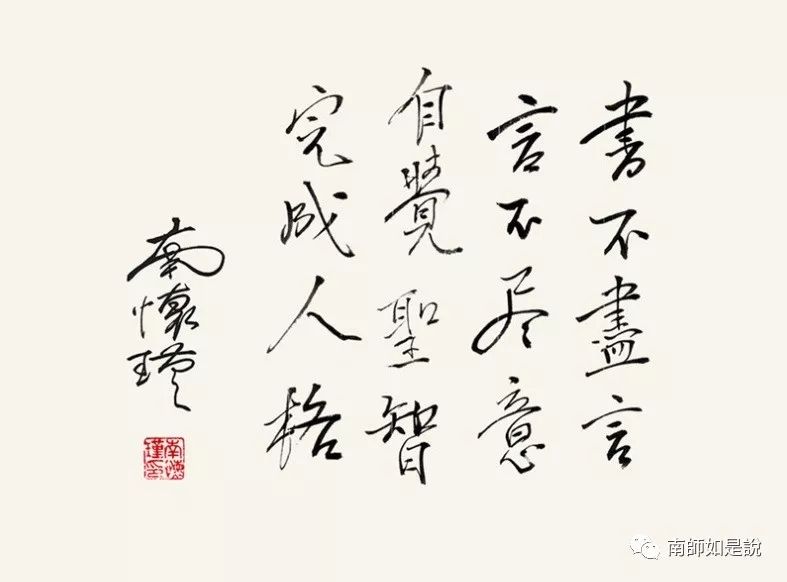 書不盡言
言不尽意
自覺聖智
完成人格
南懷瑾
南懷瑾印
南師如是說